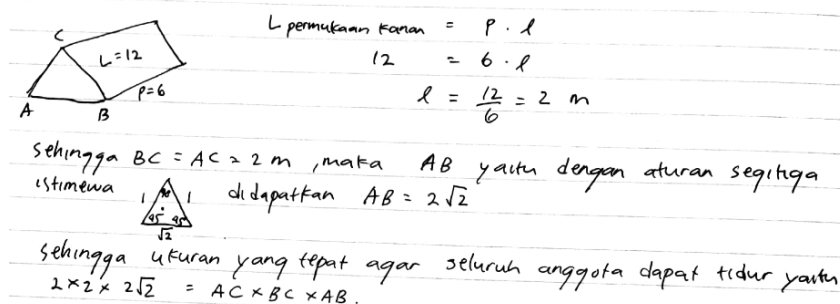 C
L = 12
P = 6
A
B
L permukaan kanan = P . l
12 = 6 . l
l = 12/6 = 2 m
Sehingga BC = AC = 2 m , maka AB yaitu dengan aturan segitiga
istimewa
1
90
1
45
45
√2
didapatkan AB = 2√2
Sehingga ukuran yang tepat agar seluruh anggota dapat tidur yaitu
2 x 2 x 2√2 = AC x BC x AB.